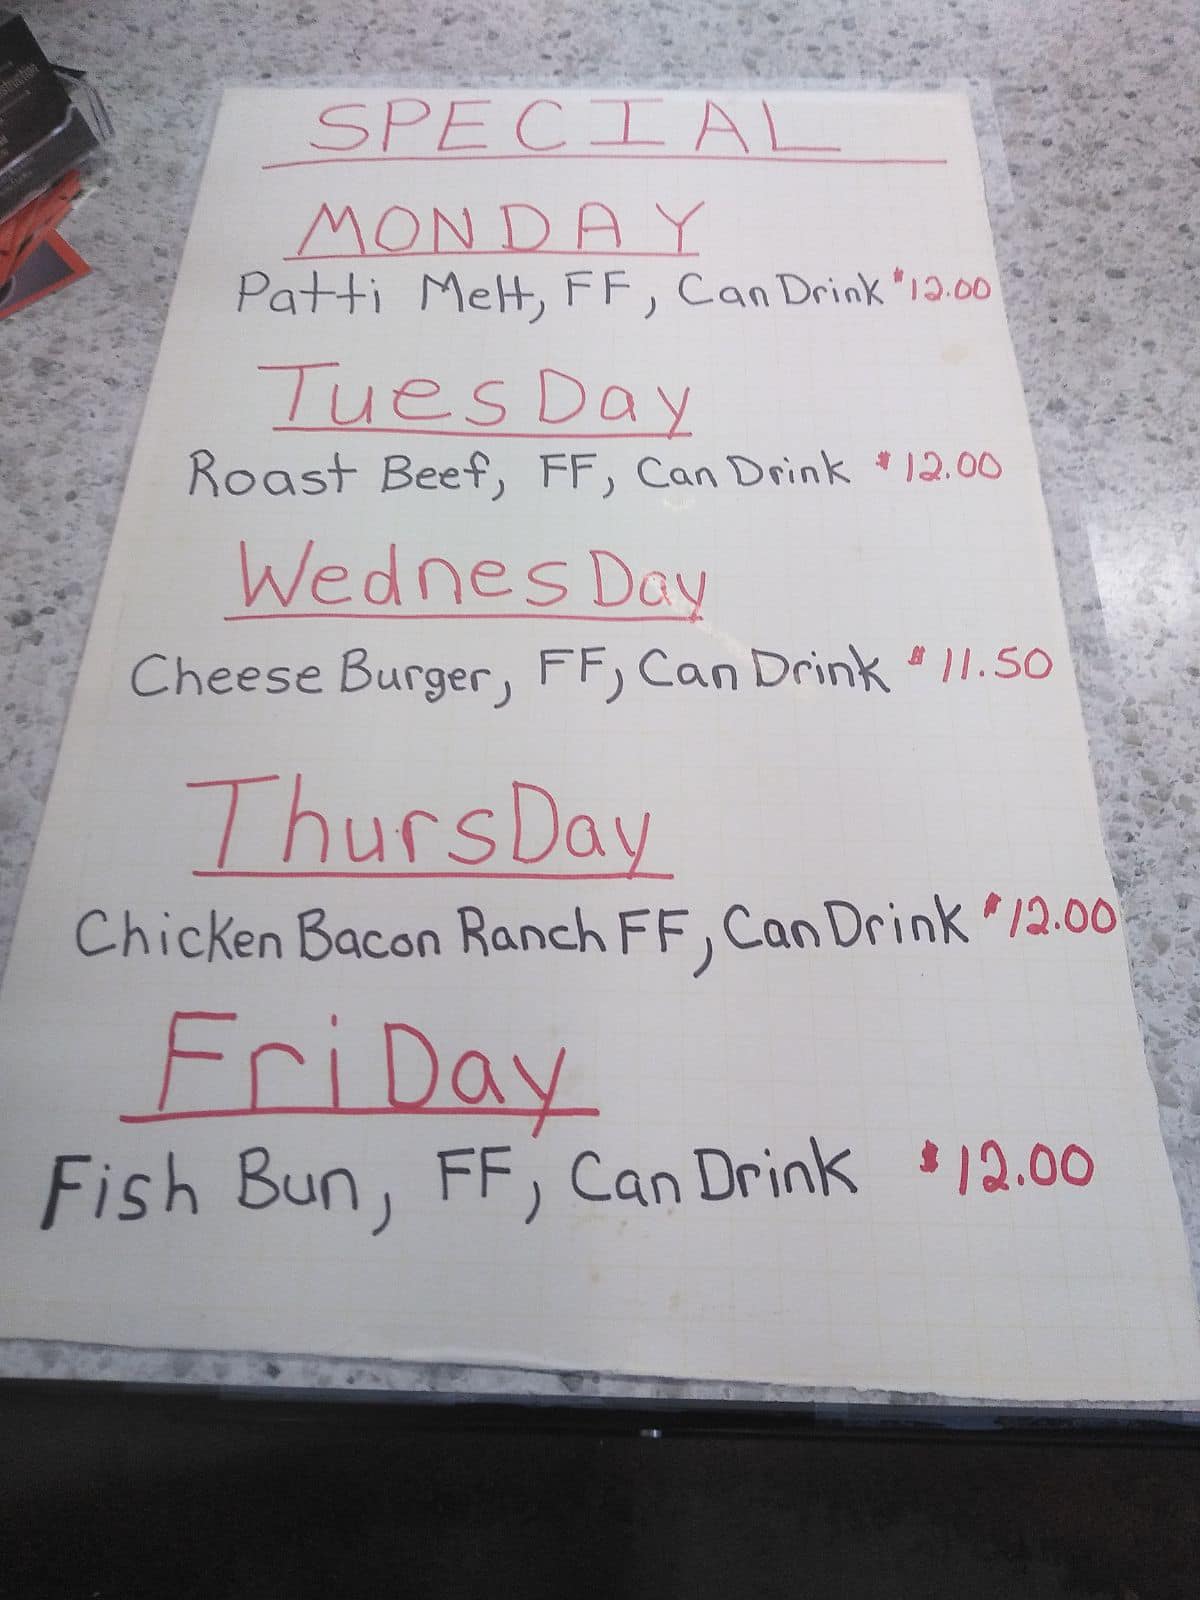 SPECIAL
MONDAY
Patti Melt, FF, Can Drink $12.00
TuesDay
Roast Beef, FF, Can Drink $12.00
WednesDay
Cheese Burger, FF, Can Drink $11.50
ThursDay
Chicken Bacon Ranch FF, Can Drink $12.00
FriDay
Fish Bun, FF, Can Drink $12.00